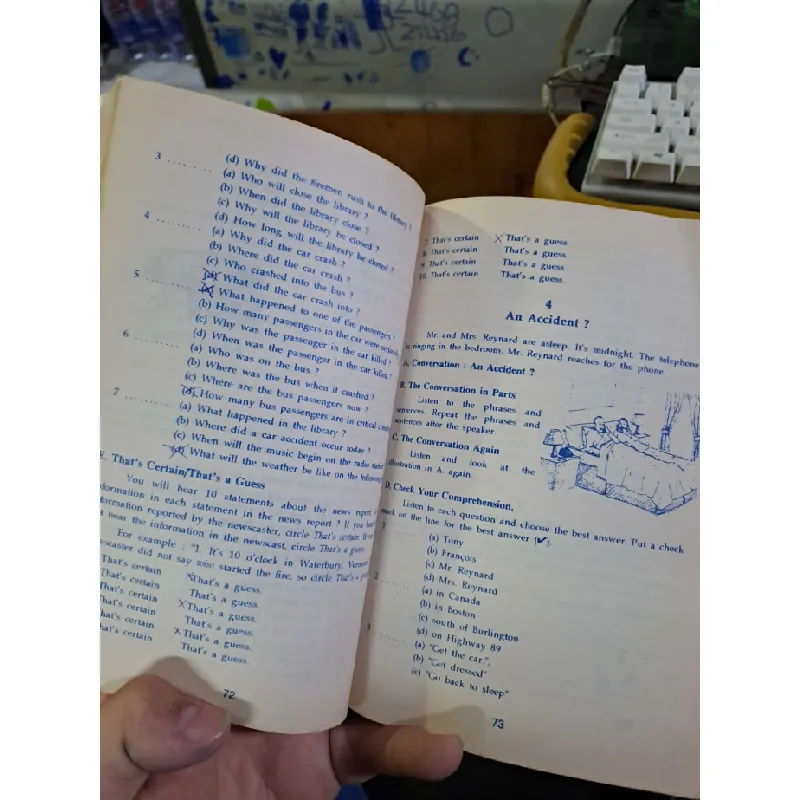 (d) Why did the firemen rush to the library ?
3 ......... (a) Who will close the library ?
(b) When did the library close ?
(c) Why will the library be closed ?
(d) How long will the library be closed ?
4 ......... (a) Why did the car crash ?
(b) Where did the car crash ?
(c) Who crashed into the bus ?
(d) What did the car crash into ?
5 ......... (a) What happened to one of the passengers ?
(b) How many passengers in the car were
(c) Why was the passenger in the car killed ?
(d) When was the passenger in the car killed ?
6 ......... (a) Who was on the bus ?
(b) Where was the bus when it crashed ?
(c) Where are the bus passengers now ?
(d) How many bus passengers are in critical
7 ......... (a) What happened in the library ?
(b) Where did a car accident occur today ?
(c) When will the music begin on the radio
(d) What will the weather be like on the following
E. That's Certain/That's a Guess
You will hear 10 statements about the news report
information in each statement in the news report ? If you hear
information reported by the newscaster, circle That's certain.
hear the information in the newscast, circle That's a guess.
For example : "1. It's 10 o'clock in Waterbury,
newscaster did not say who started the fire, so circle That's a
That's certain XThat's a guess.
That's certain That's a guess.
That's certain XThat's a guess.
That's certain That's a guess.
That's certain XThat's a guess.
That's certain That's a guess.
72
7. That's certain XThat's a guess
8. That's certain That's a guess.
9. That's certain That's a guess
10. That's certain That's a guess.
4
An Accident ?
Mr. and Mrs. Reynard are asleep. It's midnight. The telephone
is ringing in the bedroom. Mr. Reynard reaches for the phone.
A. Conversation : An Accident ?
B. The Conversation in Parts
Listen to the phrases and
sentences. Repeat the phrases and
sentences after the speaker.
C. The Conversation Again
Listen and look at the
illustration in A. again.
D. Check Your Comprehension.
Listen to each question and choose the best answer. Put a check
mark on the line for the best answer (✔).
1 ......... (a) Tony
(b) François
(c) Mr. Reynard
(d) Mrs. Reynard
2 ......... (a) in Canada
(b) in Boston
(c) south of Burlington
(d) on Highway 89
3 ......... (a) "Get the car."
(b) "Get dressed"
(c) "Go back to sleep"
73